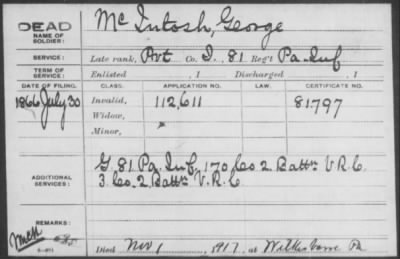 DEAD
NAME OF SOLDIER: McIntosh, George
SERVICE: Late rank, Pvt Co. I, 81 Reg't Pa. Inf
TERM OF SERVICE: Enlisted , 1 Discharged , 1
DATE OF FILING. CLASS. APPLICATION NO. LAW. CERTIFICATE NO.
1866 July 30 Invalid, 112,611 81797
Widow,
Minor,
ADDITIONAL SERVICES: G 81 Pa. Inf, 170 Co 2 Battn V.R.C.
3. Co. 2 Battn V.R.C
REMARKS:
Died Nov 1, 1917, at Wilkesbarre Pa